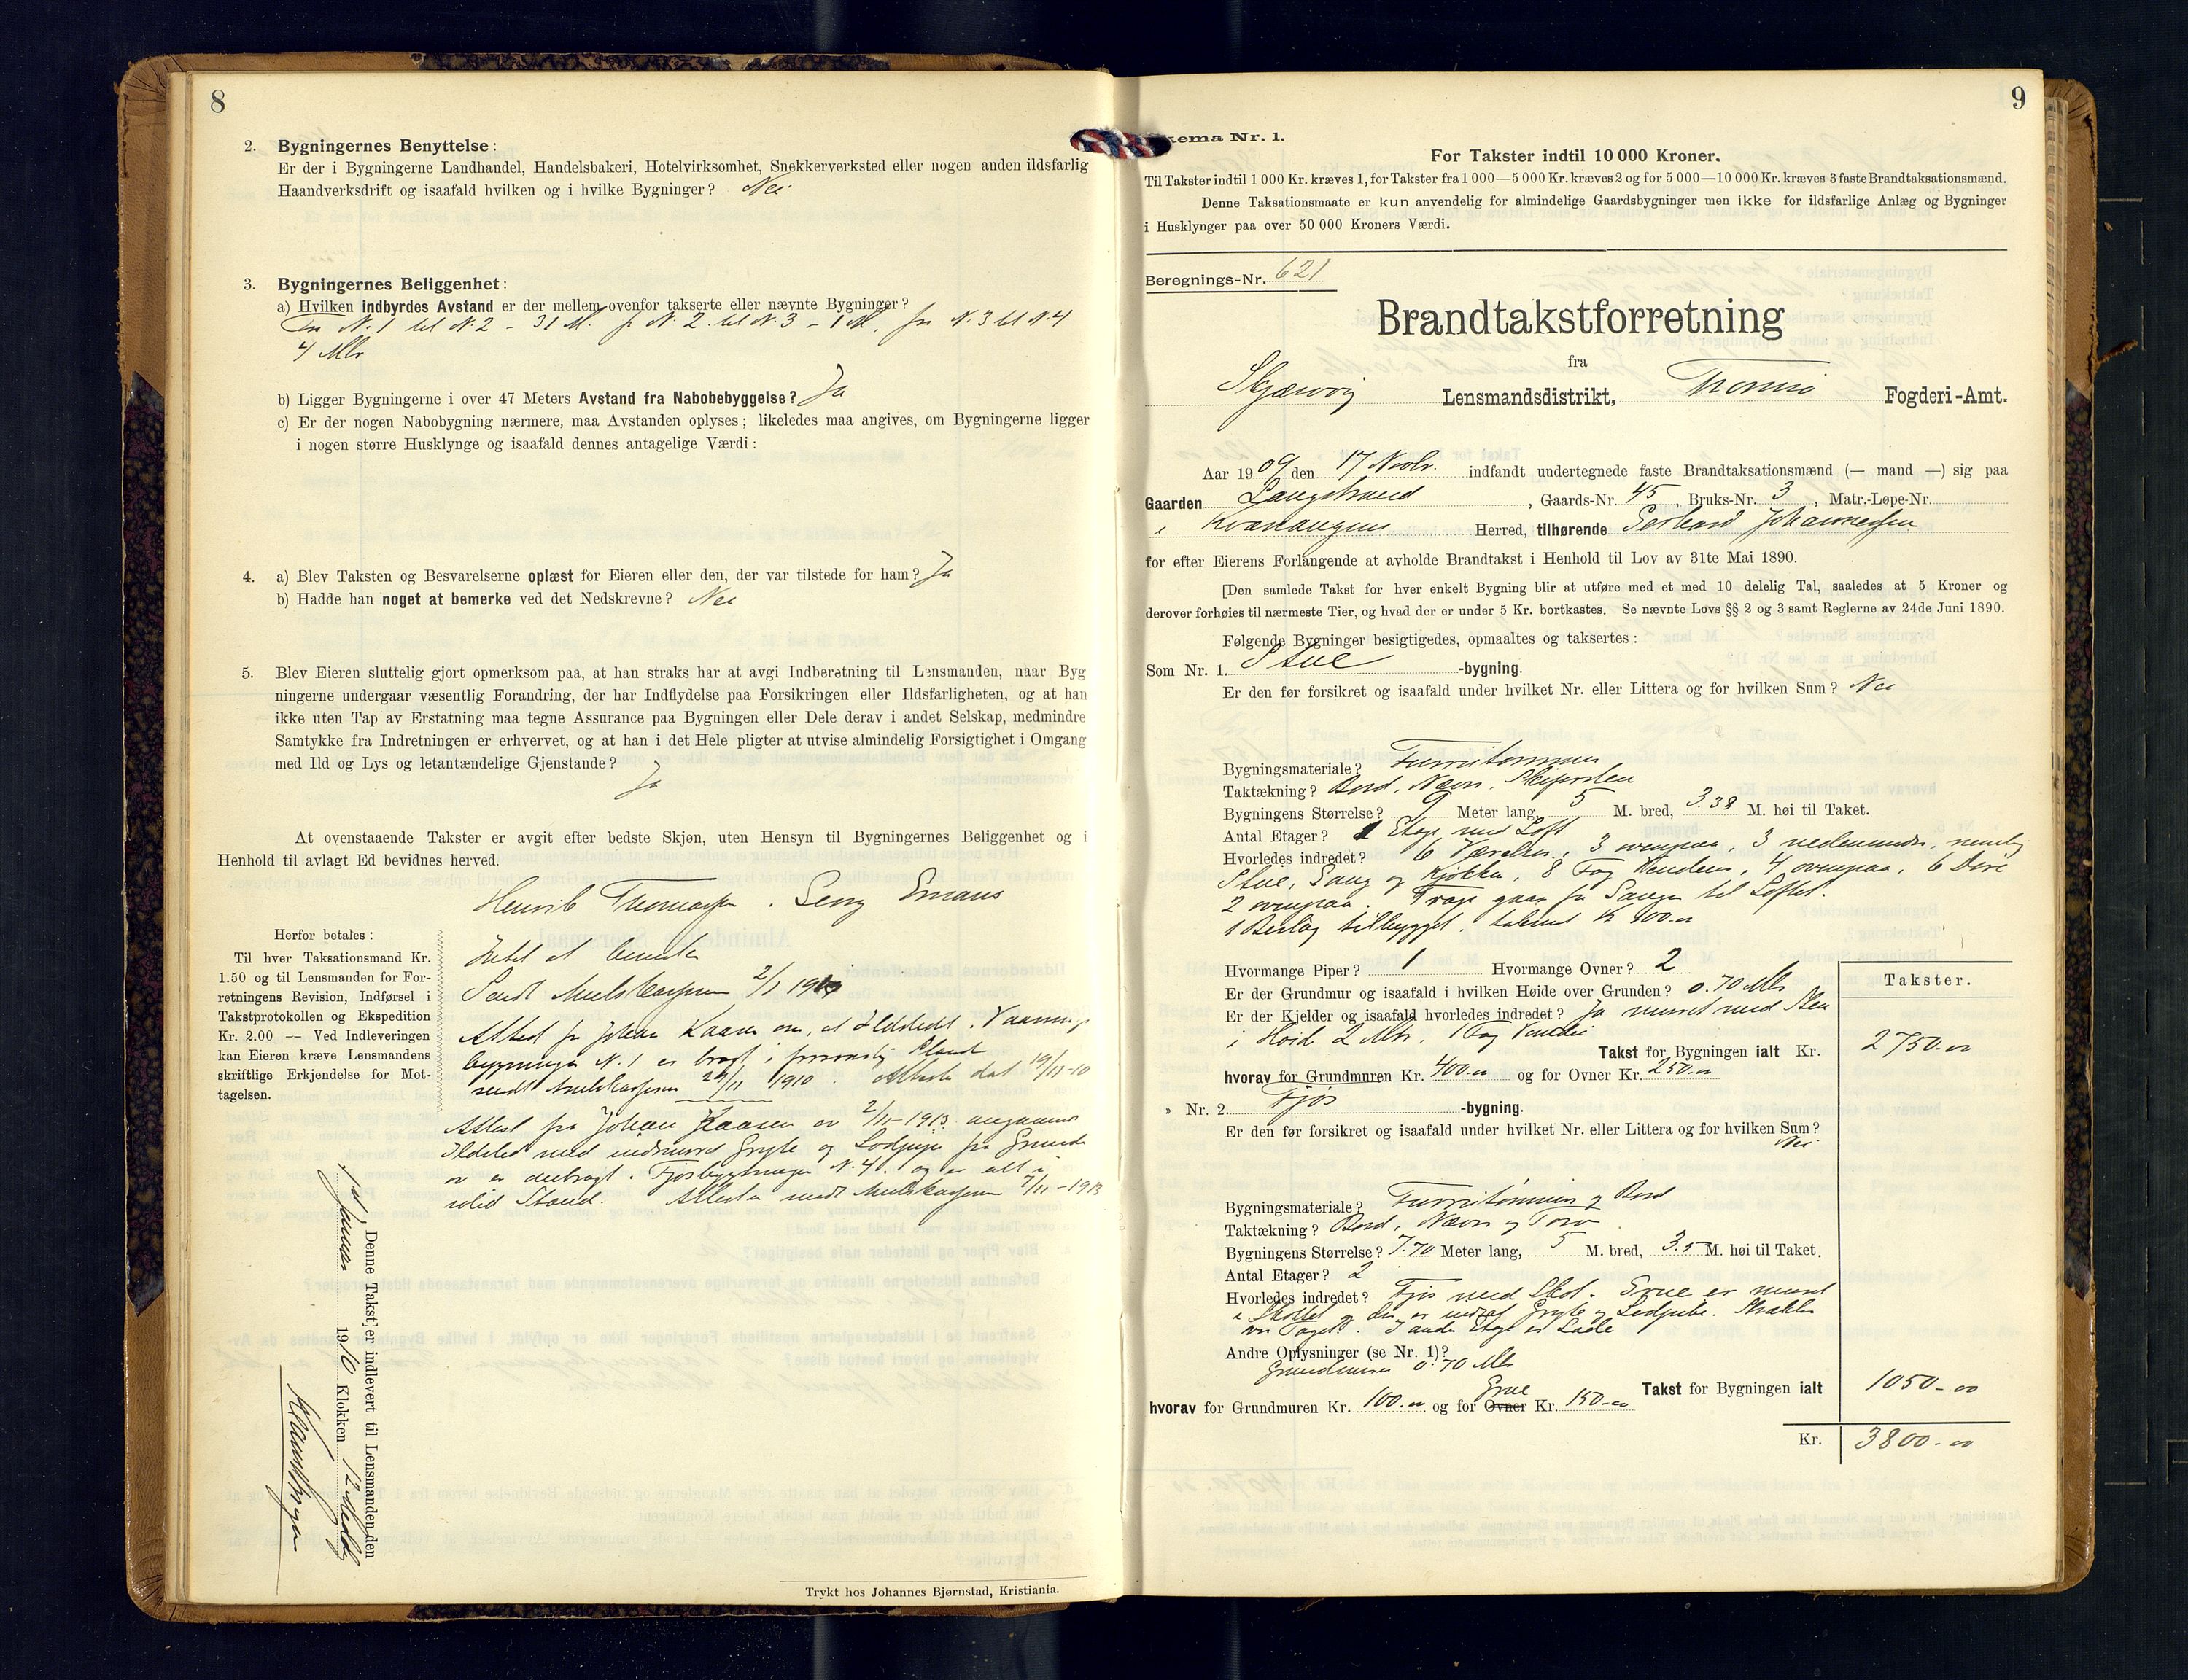 8
2. Bygningernes Benyttelse:
Er der i Bygningerne Landhandel, Handelsbakeri, Hotelvirksomhet, Snekkerverksted eller nogen anden ildsfarlig
Haandverksdrift og isaafald hvilken og i hvilke Bygninger? Nei
3. Bygningernes Beliggenhet:
a) Hvilken indbyrdes Avstand er der mellem ovenfor takserte eller nævnte Bygninger?
Fra N. 1 til N. 2 - 31 M. fr N. 2. til N. 3 - 1 M, fra N. 3 til N. 4
4 Mtr
b) Ligger Bygningerne i over 47 Meters Avstand fra Nabobebyggelse? Ja
c) Er der nogen Nabobygning nærmere, maa Avstanden oplyses; likeledes maa angives, om Bygningerne ligger
i nogen større Husklynge og isaafald dennes antagelige Værdi:
4. a) Blev Taksten og Besvarelserne oplæst for Eieren eller den, der var tilstede for ham? Ja
b) Hadde han noget at bemerke ved det Nedskrevne? Nei
5. Blev Eieren sluttelig gjort opmerksom paa, at han straks har at avgi Indberetning til Lensmanden, naar Byg
ningerne undergaar væsentlig Forandring, der har Indflydelse paa Forsikringen eller Ildsfarligheten, og at han
ikke uten Tap av Erstatning maa tegne Assurance paa Bygningen eller Dele derav i andet Selskap, medmindre
Samtykke fra Indretningen er erhvervet, og at han i det Hele pligter at utvise almindelig Forsigtighet i Omgang
med Ild og Lys og letantændelige Gjenstande?
Ja
At ovenstaaende Takster er avgit efter bedste Skjøn, uten Hensyn til Bygningernes Beliggenhet og i
Henhold til avlagt Ed bevidnes herved.
Henrik Thomassen. Georg Emaus
Herfor betales:
Til hver Taksationsmand Kr.
1.50 og til Lensmanden for For-
retningens Revision, Indførsel i
Takstprotokollen og Ekspedition
Kr. 2.00 — Ved Indleveringen
kan Eieren kræve Lensmandens
skriftlige Erkjendelse for Mot-
tagelsen.
Intet at bemerke
Sendt 2/1 1910
Attest fra Johan Kaasen om, at Ildstedet i Vaanings
bygningen N. 1 er bragt i forsvarlig Stand
sendt 24/11 1910. Attesten dat 19/11-10
Attest fra Johan Kaasen av 2/11-1913 angaaende
Ildsted med indmuret Gryte og Lodpipe fra Grunde
av er anbragt i Fjøsbygningen N. 4. og er alt i
solid Stand. Attesten sendt 7/11-1913
Denne Takst er indlevert til Lensmanden den
1ste Januar 1910 Klokken 12 Middag
Trykt hos Johannes Bjørnstad, Kristiania.
9
Skema Nr. 1.
For Takster indtil 10 000 Kroner.
Til Takster indtil 1 000 Kr. kræves 1, for Takster fra 1 000—5 000 Kr. kræves 2 og for 5 000—10 000 Kr. kræves 3 faste Brandtaksationsmænd.
Denne Taksationsmaate er kun anvendelig for almindelige Gaardsbygninger men ikke for ildsfarlige Anlæg og Bygninger
i Husklynger paa over 50 000 Kroners Værdi.
Beregnings-Nr. 621
Brandtakstforretning
fra
Skjærvø Lensmandsdistrikt, Tromsø Fogderi-Amt.
Aar 1909 den 17 Novbr. indfandt undertegnede faste Brandtaksationsmænd (— mand —) sig paa
Gaarden Langstrand, Gaards-Nr. 45, Bruks-Nr. 3, Matr.-Løpe-Nr.
i Kvænangens Herred, tilhørende Gerhard Johannessen
for efter Eierens Forlangende at avholde Brandtakst i Henhold til Lov av 31te Mai 1890.
[Den samlede Takst for hver enkelt Bygning blir at utføre med et med 10 delelig Tal, saaledes at 5 Kroner og
derover forhøies til nærmeste Tier, og hvad der er under 5 Kr. bortkastes. Se nævnte Lovs §§ 2 og 3 samt Reglerne av 24de Juni 1890.
Følgende Bygninger besigtigedes, opmaaltes og taksertes:
Som Nr. 1. Stue -bygning.
Er den før forsikret og isaafald under hvilket Nr. eller Littera og for hvilken Sum? Nei
Bygningsmateriale? Furretømmer
Taktækning? Bord, Næver, Skifersten
Bygningens Størrelse? 9 Meter lang, 5 M. bred, 3.38 M. høi til Taket.
Antal Etager? 1 Etage med Loft
Hvorledes indredet? 6 Værelser, 3 ovenpaa, 3 nedenunder, nemlig
Stue, Gang og Kjøkken, 8 Fag Vinduer, 4 ovenpaa, 6 Døre
2 ovenpaa. Trap gaar fra Gangen til Loftet.
1 Beslag tilbygget, taxeret Kr 100.00
Hvormange Piper? 1 Hvormange Ovner? 2
Er der Grundmur og isaafald i hvilken Høide over Grunden? 0.70 Mtr
Er der Kjelder og isaafald hvorledes indredet? Ja muret med Sten
i Høid 2 Mtr. 1 Fag Vindu
Takster.
Takst for Bygningen ialt Kr. 2750.00
hvorav for Grundmuren Kr. 400.00 og for Ovner Kr. 250.00
» Nr. 2. Fjøs -bygning.
Er den før forsikret og isaafald under hvilket Nr. eller Littera og for hvilken Sum?
Nei
Bygningsmateriale? Furretømmer og Bord
Taktækning? Bord, Næver og Torv
Bygningens Størrelse? 7.70 Meter lang, 5 M. bred, 3.5 M. høi til Taket.
Antal Etager? 2
Hvorledes indredet? Fjøs med Skot. Grue er muret
i Skottet og der er indsat Gryte og Lodpibe. Strækker
over Taget. I anden Etage er Lade
Andre Oplysninger (se Nr. 1)?
Grundmuren 0.70 Mtr
Takst for Bygningen ialt 1050-00
hvorav for Grundmuren Kr. 100.00 og for Ovner Grue Kr. 150-00
Kr. 3800-00